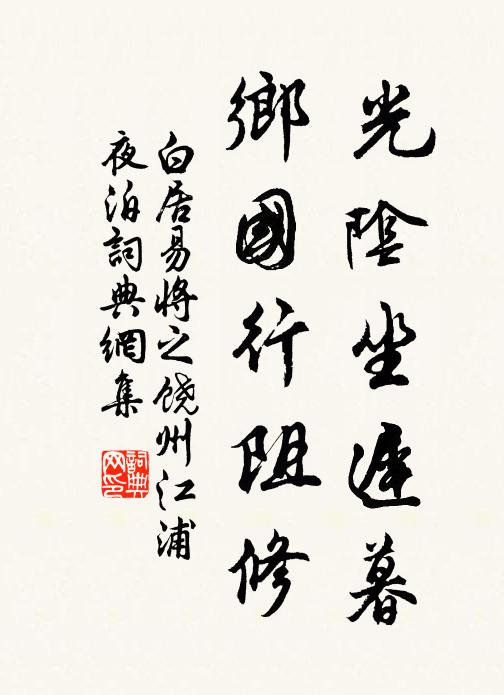 光陰坐遲暮
鄉國行阻修
白居易將之饒州江浦
夜泊詞典網集
詞典
网印